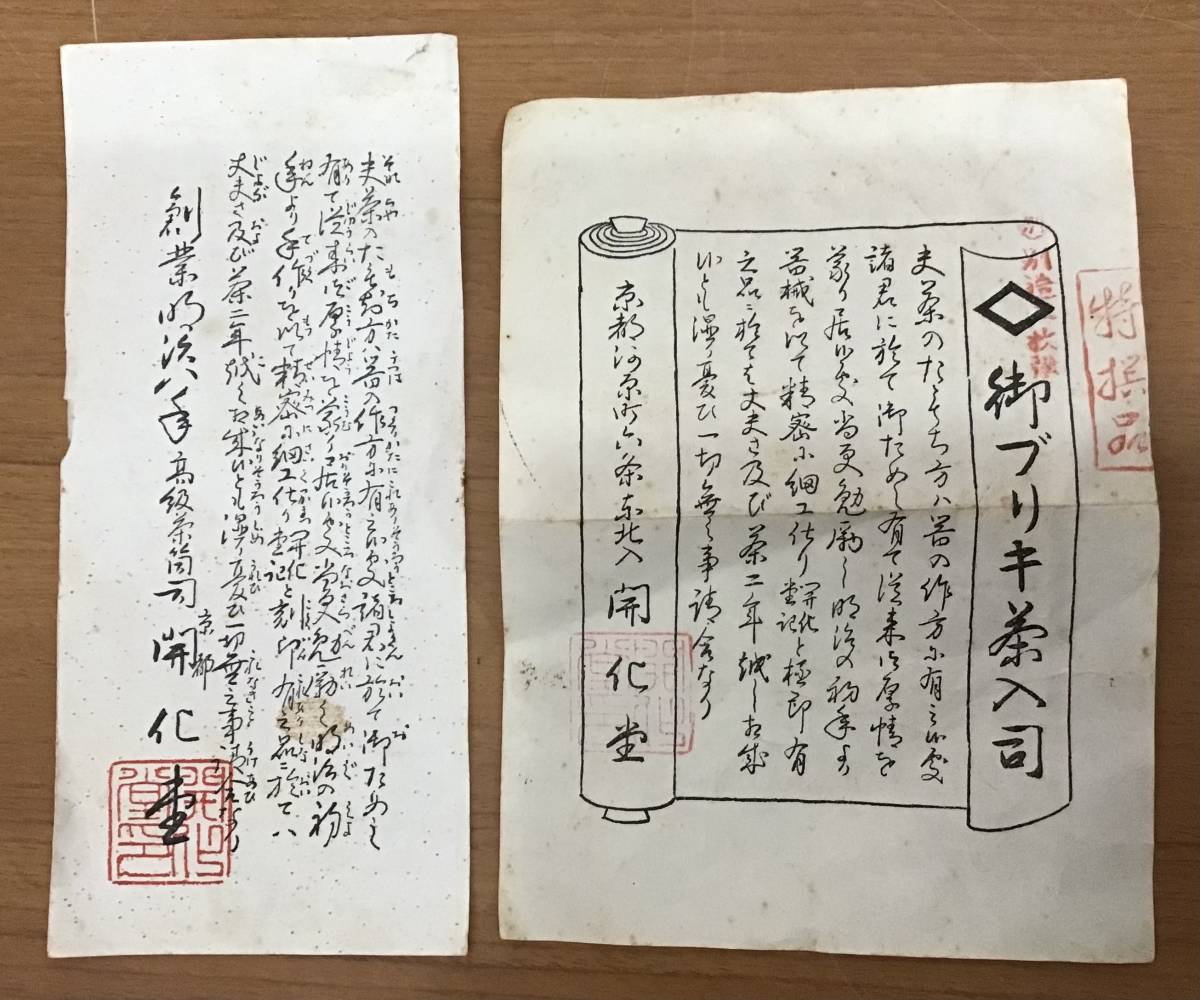 特撰品
御ブリキ茶入司
夫茶のたもち方ハ器の作方に有之候處
諸君に於て御ためし有て従来御厚情を
蒙り居候处尚更勉励し明治の初年より
器械を以て精密に細工仕り開化堂記と極印有
之品ニ於てハ丈夫さ及び茶二年越しお成
候とも湿り憂ひ一切無之事請合なり
京都河原町六条東北入 開化堂
夫茶のたもち方ハ器の作方に有之候處諸君に於て御ためし
有て従来御厚情を蒙り居候处尚更勉励し明治の初
年より手作りを以て精密に細工仕り開化堂記と刻印有之品ニ於てハ
丈夫さ及び茶二年越しお成候とも湿り憂ひ一切無之事請合なり
創業明治八年 高級茶筒司 京都 開化堂